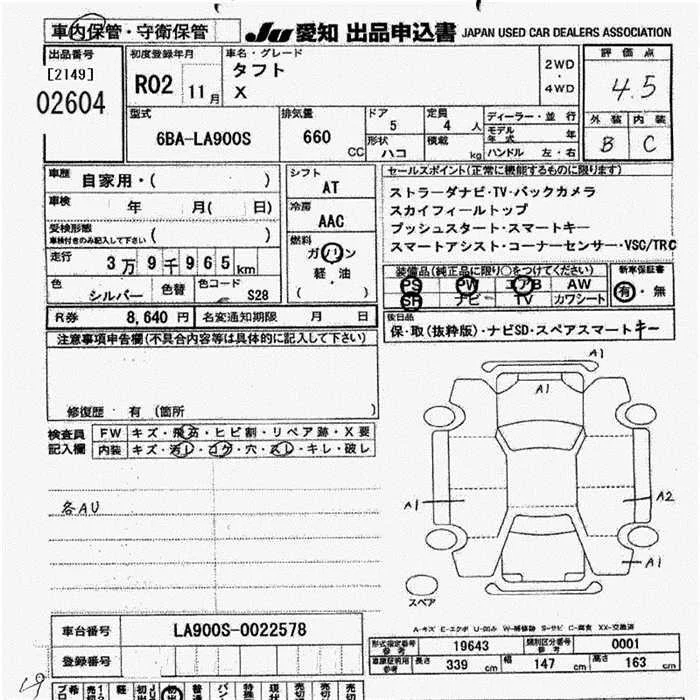 車内保管・守衛保管
JU 愛知 出品申込書 JAPAN USED CAR DEALERS ASSOCIATION
出品番号
[2149]
02604
初度登録年月
R02 11月
車名・グレード
タフト
X
2WD
・
4WD
評価点
4.5
外装 内装
B C
型式
6BA-LA900S
排気量
660 CC
ドア
5
定員
4 人
形状
ハコ
積載
kg
ディーラー・並行
モデル年式 年
ハンドル 左・右
車歴 自家用・( )
車検 年 月( 日)
受検形態
車検付きのみ記入して下さい ( )
走行 3万9千965km
色 シルバー 色替 色コード S28
シフト
AT
冷房
AAC
燃料
ガソリン
軽・油
( )
セールスポイント(正常に機能するものに限ります)
ストラーダナビ・TV・バックカメラ
スカイフィールトップ
プッシュスタート・スマートキー
スマートアシスト・コーナーセンサー・VSC/TRC
装備品(純正品に限り○をつけてください)
PS PW エアB AW
SR ナビ TV カワシート
新車保証書
有・無
R券 8,640 円 名変通知期限 月 日
後日品
保・取(抜粋版)・ナビSD・スペアスマートキー
注意事項申告欄(不具合内容等は具体的に記入して下さい)
修復歴・有 (箇所 )
検査員
記入欄
FW キズ・飛石・ヒビ割・リペア跡・X要
内装 キズ・汚れ・コゲ・穴・スレ・キレ・破レ
各AU
A1
A1
A1
A2
A1
スペア
A-キズ E-エクボ U-凹み W-補修跡 S-サビ C-腐食 XX-交換済
車台番号 LA900S-0022578
登録番号
型式指定番号
参考
19643
類別区分番号
参考
0001
車庫証明用
参考
長さ 339 cm 幅 147 cm 高さ 163 cm